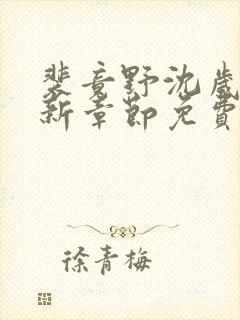 裴意野沈崴
新章節免費
徐青梅